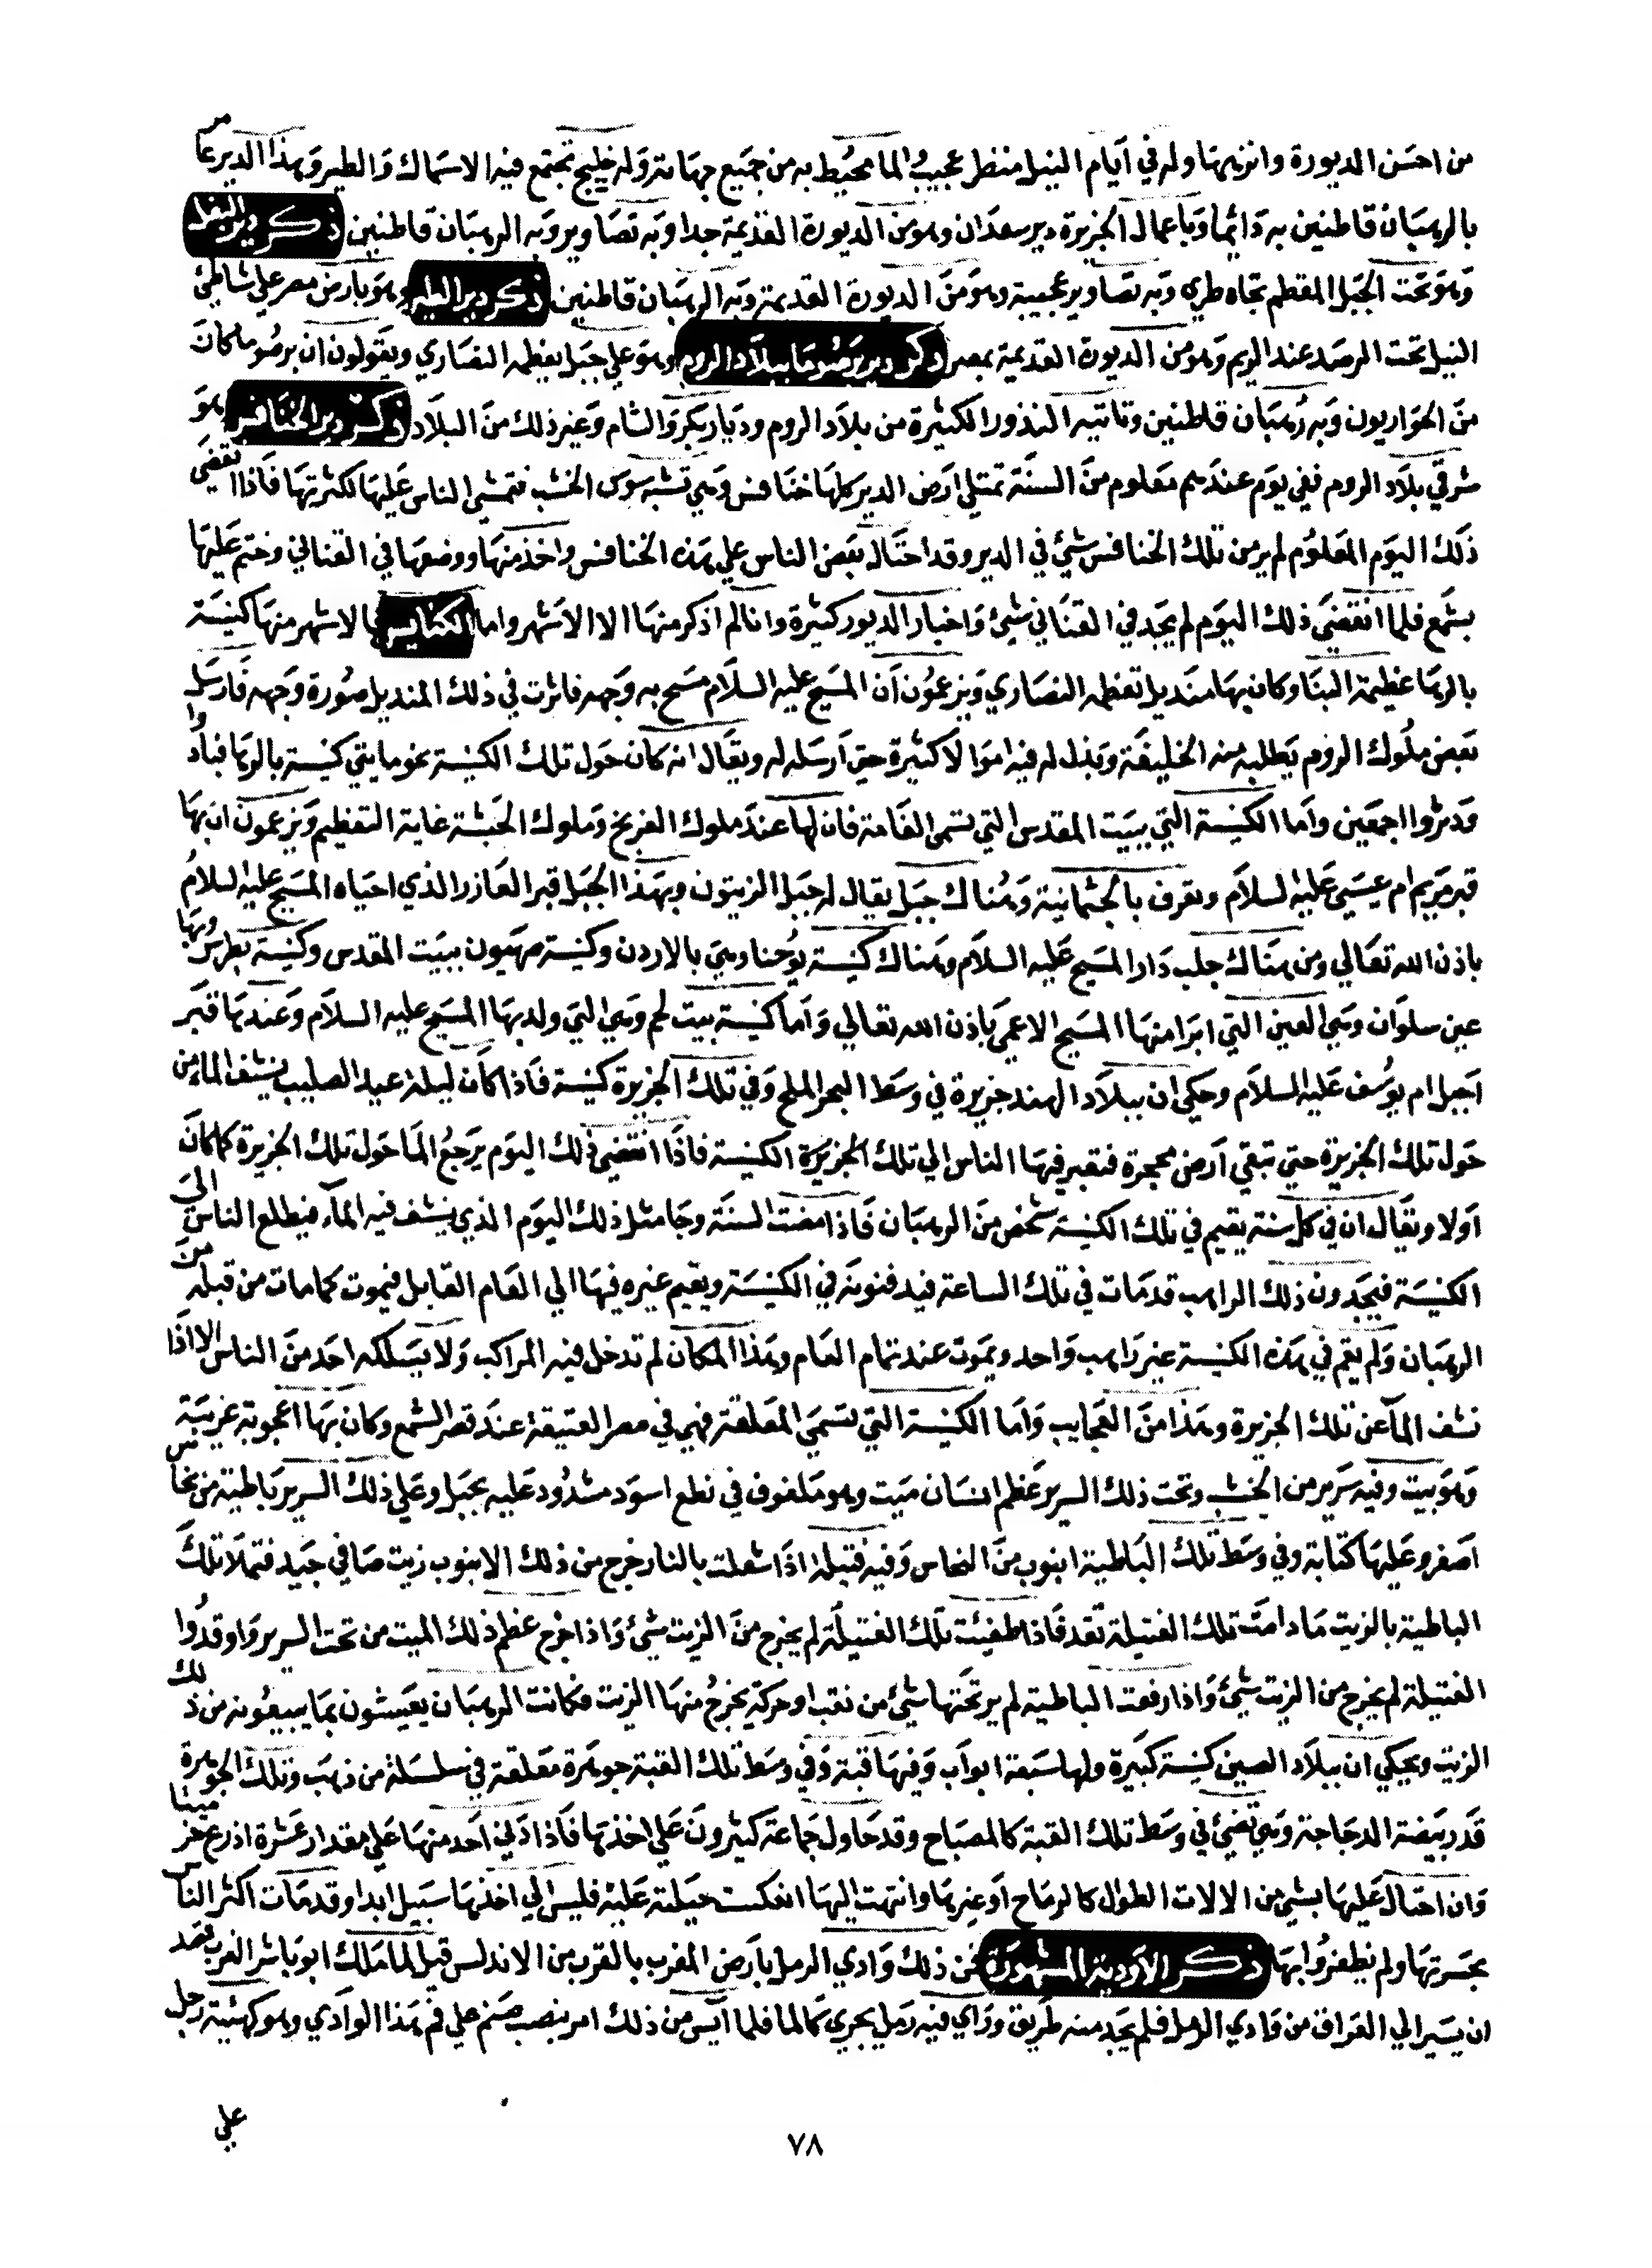 من احسن الديورة وانزهها وله في ايام النيل منظر عجيب والما محيط به من جميع جهاته وله خليج تجتمع فيه الاسماك والطير وبهذا الدير عامر
بالرهبان قاطنين به دائما وباعمال الجزيرة دير سعدان وهو من الديورة القديمة جدا وبه تصاوير وبه الرهبان قاطنين ذكر دير البغل
وهو تحت الجبل المقطم تجاه طري وبه تصاوير عجيبة وهو من الديورة القديمة وبه الرهبان قاطنين ذكر دير وهو بارض مصر علي شاطئ
النيل تحت الرصد عند الريم وهو من الديورة القديمة بمصر ذكر دير برصوما ببلاد الروم وهو علي جبل يعظمه النصاري ويقولون ان برصوما كان
من الحواريون وبه رهبان قاطنين وتاتيه النذور الكثيرة من بلاد الروم وديار بكر والشام وغير ذلك من البلاد ذكر دير الخنافس هو
شرقي بلاد الروم ففي يوم عندهم معلوم من السنة تمتلي ارض الدير كلها خنافس وهي تشبه سوس الخشب فتمشي الناس عليها لكثرتها فاذا انقضي
ذلك اليوم المعلوم لم ير من تلك الخنافس شئ في الدير وقد احتال بعض الناس علي هذه الخنافس واخذ منها ووضعها في القناني وختم عليها
بشمع فلما انقضي ذلك اليوم لم يجد في القناني شئ واخبار الديور كثيرة وانا لم اذكر منها الا الاشهر واما الكنايس فالاشهر منها كنيسة
بالرها عظيمة البنا وكان بها منديل تعظمه النصاري ويزعمون ان المسيح عليه السلام مسح به وجهه فاثرت في ذلك المنديل صورة وجهه فارسل
بعض ملوك الروم يطلبه منه الخليفة وبذل له فيه اموالا كثيرة حتي ارسله له ويقال انه كان حول تلك الكنيسة نحو مايتي كنيسة بالرها فبادوا
ودثروا اجمعين واما الكنيسة التي ببيت المقدس التي تسمي القمامة فان لها عند ملوك الفرنج وملوك الحبشة غاية التعظيم ويزعمون ان بها
قبر مريم ام عيسي عليه السلام وتعرف بالجثمانية وهناك جبل يقال له جبل الزيتون وبهذا الجبل قبر العازر الذي احياه المسيح عليه السلام
باذن الله تعالي ومن هناك جلب دار المسيح عليه السلام وهناك كنيسة يوحنا وهي بالاردن وكنيسة صهيون ببيت المقدس وكنيسة بطرس وبها
عين سلوان وهي العين التي ابرا منها المسيح الاعمي باذن الله تعالي واما كنيسة بيت لحم وهي التي ولد بها المسيح عليه السلام وعندها قبر
احيل ام يوسف عليه السلام وحكي ان ببلاد الهند جزيرة في وسط البحر الملح وفي تلك الجزيرة كنيسة فاذا كان ليلة عيد الصليب ينشف الماء من
حول تلك الجزيرة حتي تبقي ارض محجرة فتعبر فيها الناس الي تلك الجزيرة الكنيسة فاذا انقضي ذلك اليوم يرجع الما حول تلك الجزيرة كما كان
اولا ويقال ان في كل سنة يقيم في تلك الكنيسة شخص من الرهبان فاذا مضت السنة وجا مثل ذلك اليوم الذي ينشف فيه الماء فيطلع الناس الي
الكنيسة فيجدون ذلك الراهب قد مات في تلك الساعة فيدفنونه في الكنيسة ويقيم غيره فيها الي العام القابل فيموت كما مات من قبله من
الرهبان ولم يقم في هذه الكنيسة غير راهب واحد ويموت عند تمام العام وهذا المكان لم تدخل فيه المراكب ولا يسلكه احد من الناس الا اذا
نشف الماء عن تلك الجزيرة وهذا من العجايب واما الكنيسة التي تسمي المعلقة فهي في مصر العتيقة عند قصر الشمع وكان بها اعجوبة غريبة
وهو بيت وفيه سرير من الخشب وتحت ذلك السرير عظم انسان ميت وهو ملفوف في نطع اسود مشدود عليه بحبل وعلي ذلك السرير باطية من نحاس
اصفر وعليها كتابة وفي وسط تلك الباطية انبوب من النحاس وفيه فتيلة اذا شعلت بالنار خرج من ذلك الانبوب زيت صافي جيد فتملا تلك
الباطية بالزيت ما دامت تلك الفتيلة تقد فاذا طفئت تلك الفتيلة لم يخرج من الزيت شئ واذا اخرج عظم ذلك الميت من تحت السرير واوقدوا
الفتيلة لم يخرج من الزيت شئ واذا رفعت الباطية لم ير تحتها شئ من نقب او حركة يخرج منها الزيت فكانت الرهبان يعيشون بما يبيعونه من ذلك
الزيت ويحكي ان ببلاد الصين كنيسة كبيرة ولها سبعة ابواب وفيها قبة وفي وسط تلك القبة جوهرة معلقة في سلسلة من ذهب وتلك الجوهرة
قدر بيضة الدجاجة وهي تضئ في وسط تلك القبة كالمصباح وقد حاول جماعة كثيرون علي اخذها فاذا دني احد منها علي مقدار عشرة اذرع خر ميتا
وان احتال عليها بشئ من الالات الطوال كالرماح او غيرها وانتهت اليها انعكست حيلته عليه فليس الي اخذها سبيل ابدا وقد مات اكثر الناس
بحسرتها ولم يظفروا بها ذكر الاودية المشهورة فمن ذلك وادي الرمل بارض المغرب بالقرب من الاندلس قيل لما ملك ابو ياشر الغرب قصد
ان يسير الي العراق من وادي الرمل فلم يجد منه طريق وراي فيه رمل يجري كالما فلما ايس من ذلك امر بنصب صنم علي فم هذا الوادي وهو كهيئة رجل
علي
٧٨